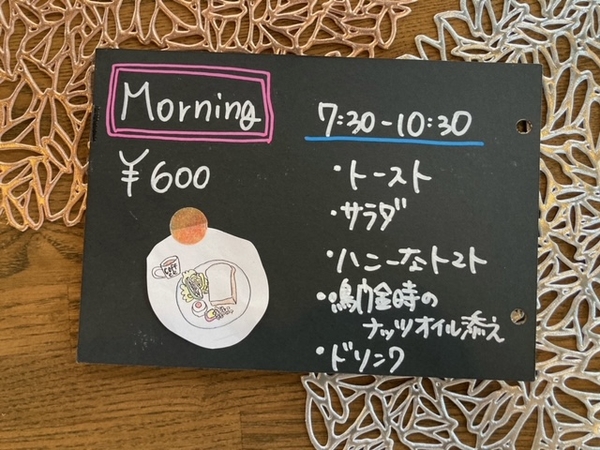 Morning
¥600
7:30-10:30
・トースト
・サラダ
・ハニーなトマト
・鳴門金時の
ナッツオイル添え
・ドリンク